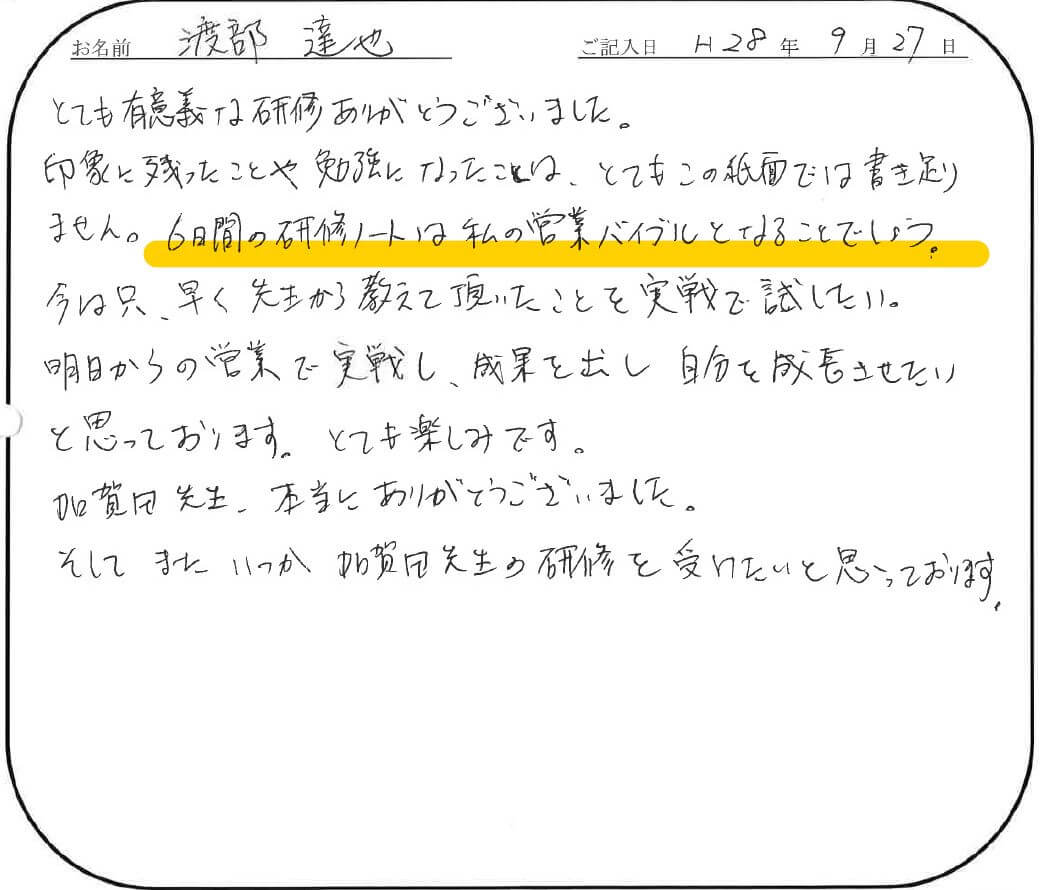 お名前 渡部 達也 ご記入日 H28年 9月27日
とても有意義な研修ありがとうございました。
印象に残ったことや勉強になったことは、とてもこの紙面では書き足り
ません。6日間の研修ノートは私の営業バイブルとなることでしょう。
今は只、早く先生から教えて頂いたことを実戦で試したい。
明日からの営業で実戦し、成果を出し自分を成長させたい
と思っております。とても楽しみです。
加賀田先生、本当にありがとうございました。
そしてまたいつか加賀田先生の研修を受けたいと思っております。